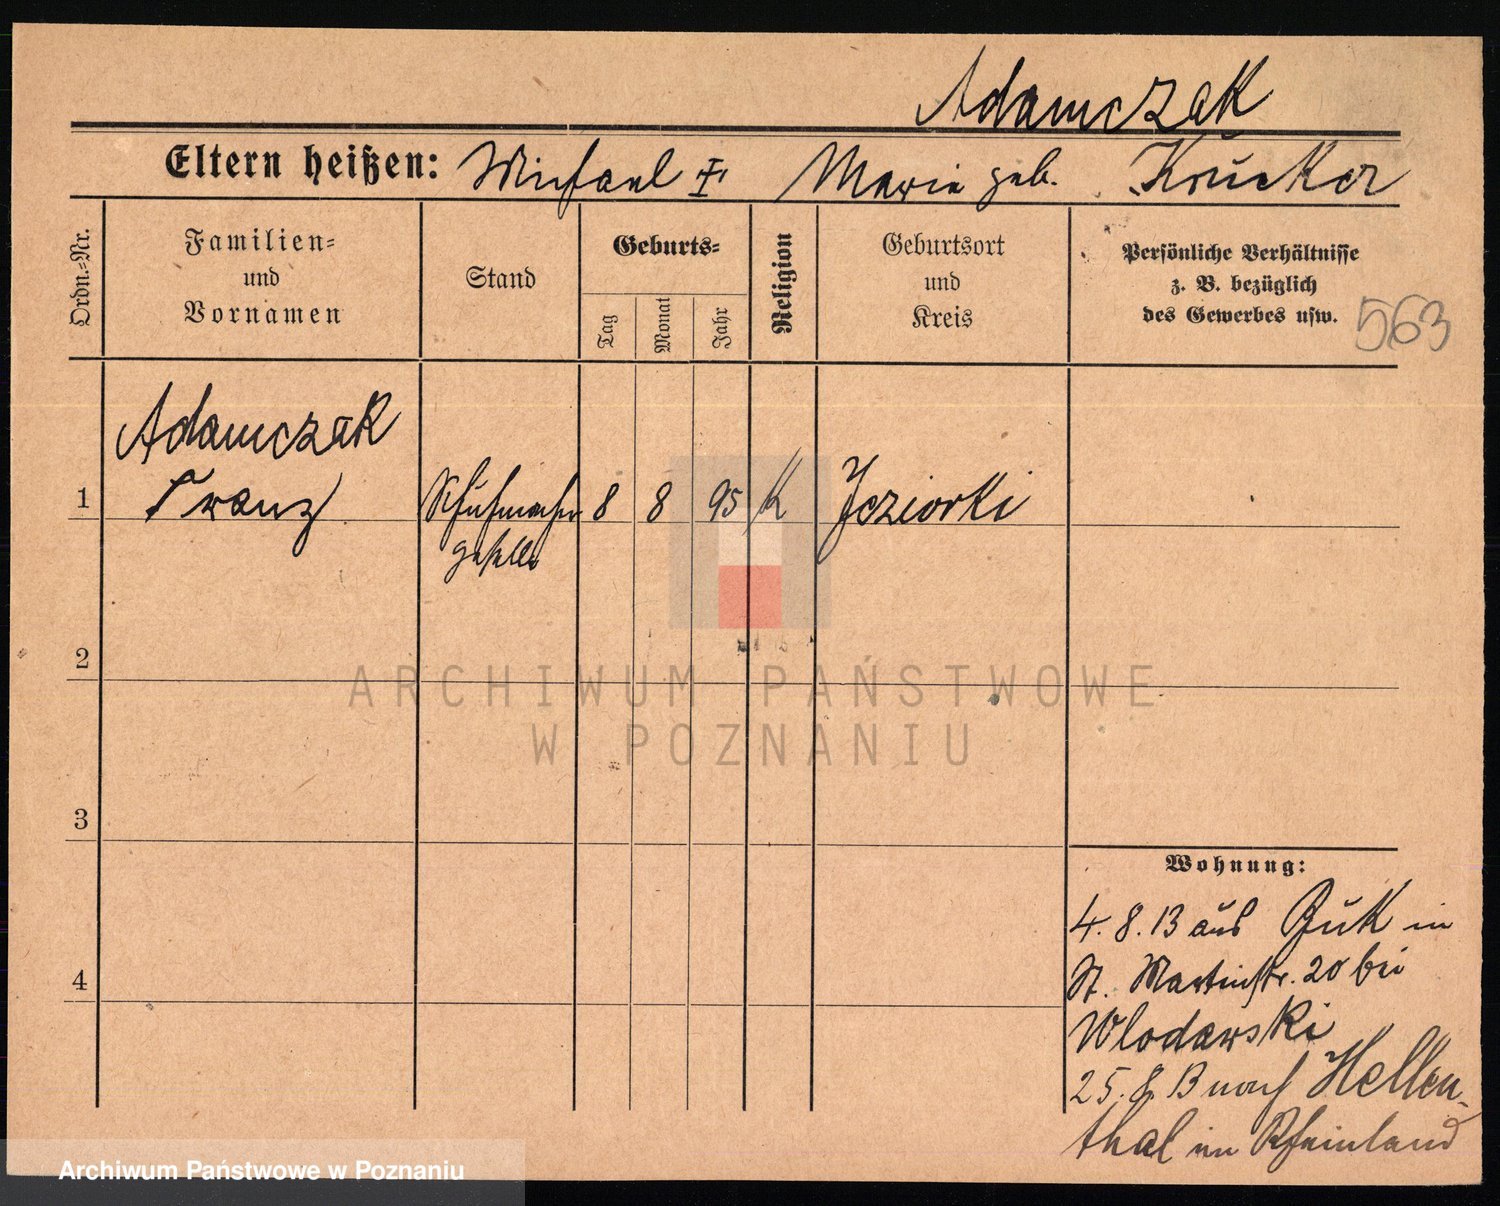 Adamczak
Eltern heißen: Michael † Marie geb. Krücker
Ordn.=Nr.
Familien=
und
Vornamen
Stand
Geburts=
Tag
Monat
Jahr
Religion
Geburtsort
und
Kreis
Persönliche Verhältnisse
z. B. bezüglich
des Gewerbes usw.
563
Adamczak
1 Franz Schuhmacher 8 8 95 K Jeziorki
geselle
2
ARCHIWUM PAŃSTWOWE
W POZNANIU
3
Wohnung:
4. 8. 13 aus Buk in
4 St. Martinstr. 20 bei
Wlodawski
25. 8. 13 nach Hellen-
thal im Rheinland
Archiwum Państwowe w Poznaniu